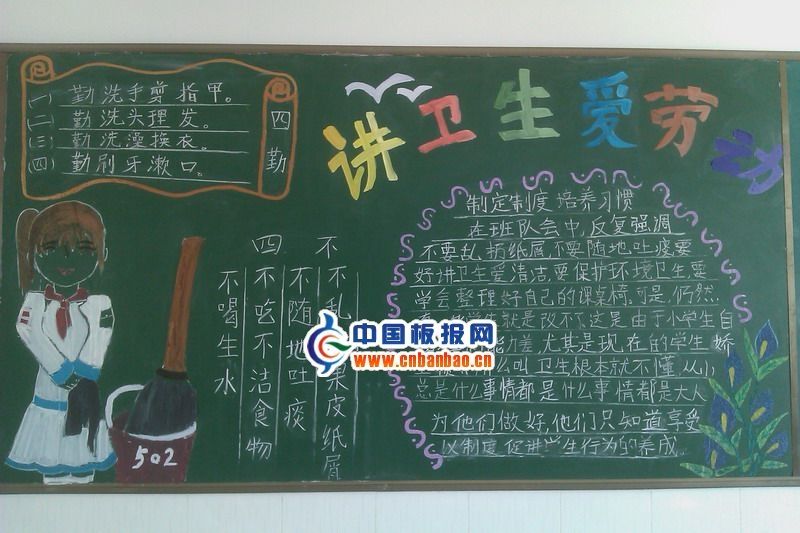 讲卫生爱劳动
四勤
(一) 勤洗手剪指甲。
(二) 勤洗头理发。
(三) 勤洗澡换衣。
(四) 勤刷牙漱口。
四不
不乱果皮纸屑
不随地吐痰
不吃不洁食物
不喝生水
502
制定制度 培养习惯
在班队会中,反复强调
不要乱扔纸屑,不要随地吐痰要
好讲卫生爱清洁,要保护环境卫生要
学会整理好自己的课桌椅,可是,仍然
学生就是改不了,这是由于小学生自
能力差,尤其是现在的学生娇
么叫卫生根本就不懂,从小
总是什么事情都是什么事情都是大人
为他们做好,他们只知道享受
以制度促进学生行为的养成.
中国板报网
www.cnbanbao.cn